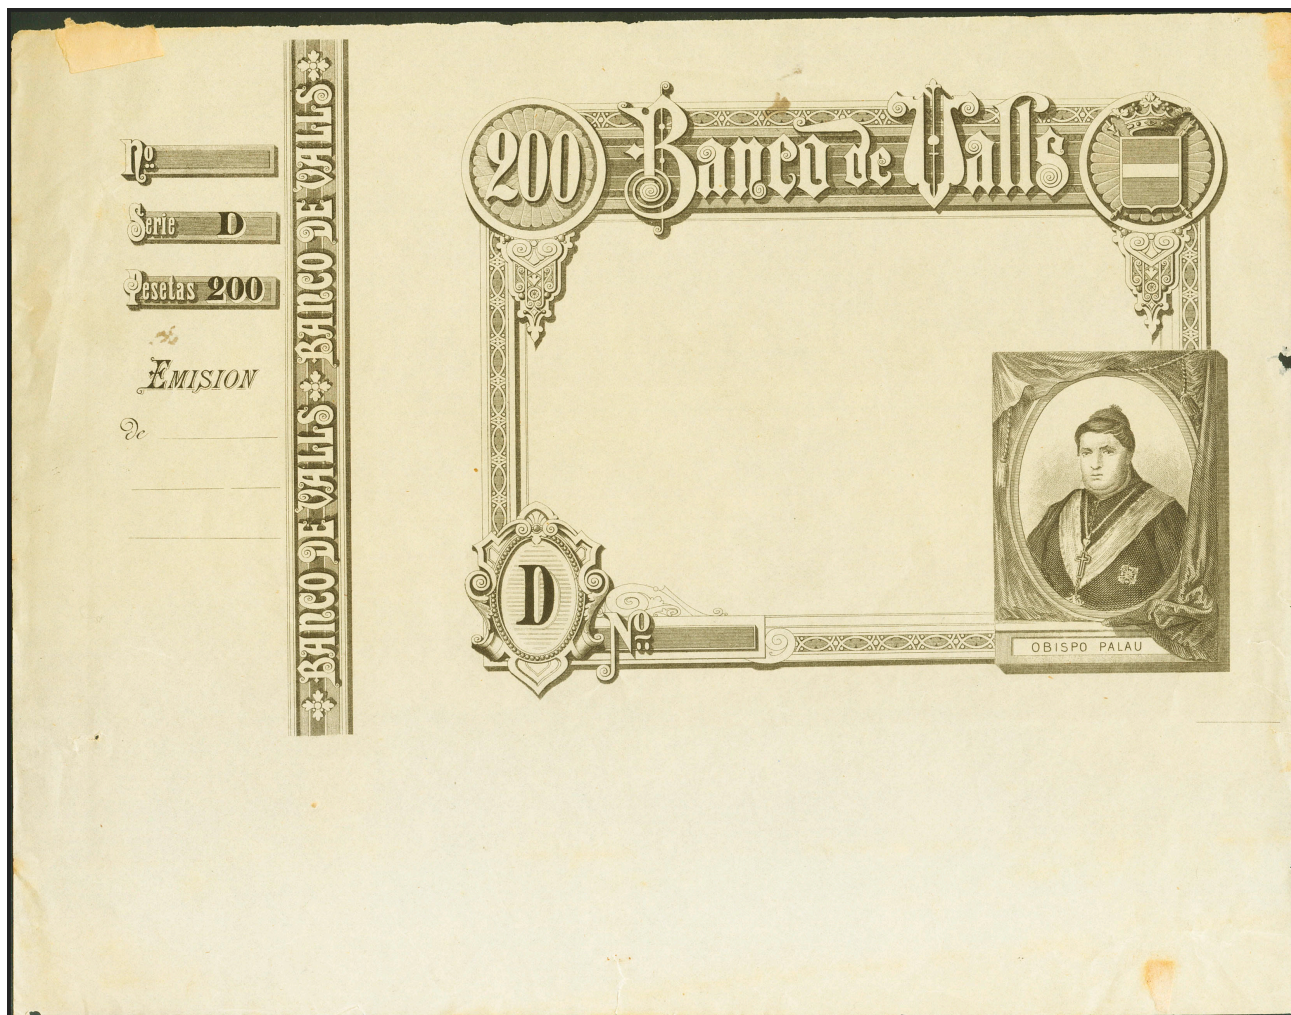 Nº
Serie D
Pesetas 200
EMISION
de
BANCO DE VALLS BANCO DE VALLS
200 Banco de Valls
D
Nº
OBISPO PALAU